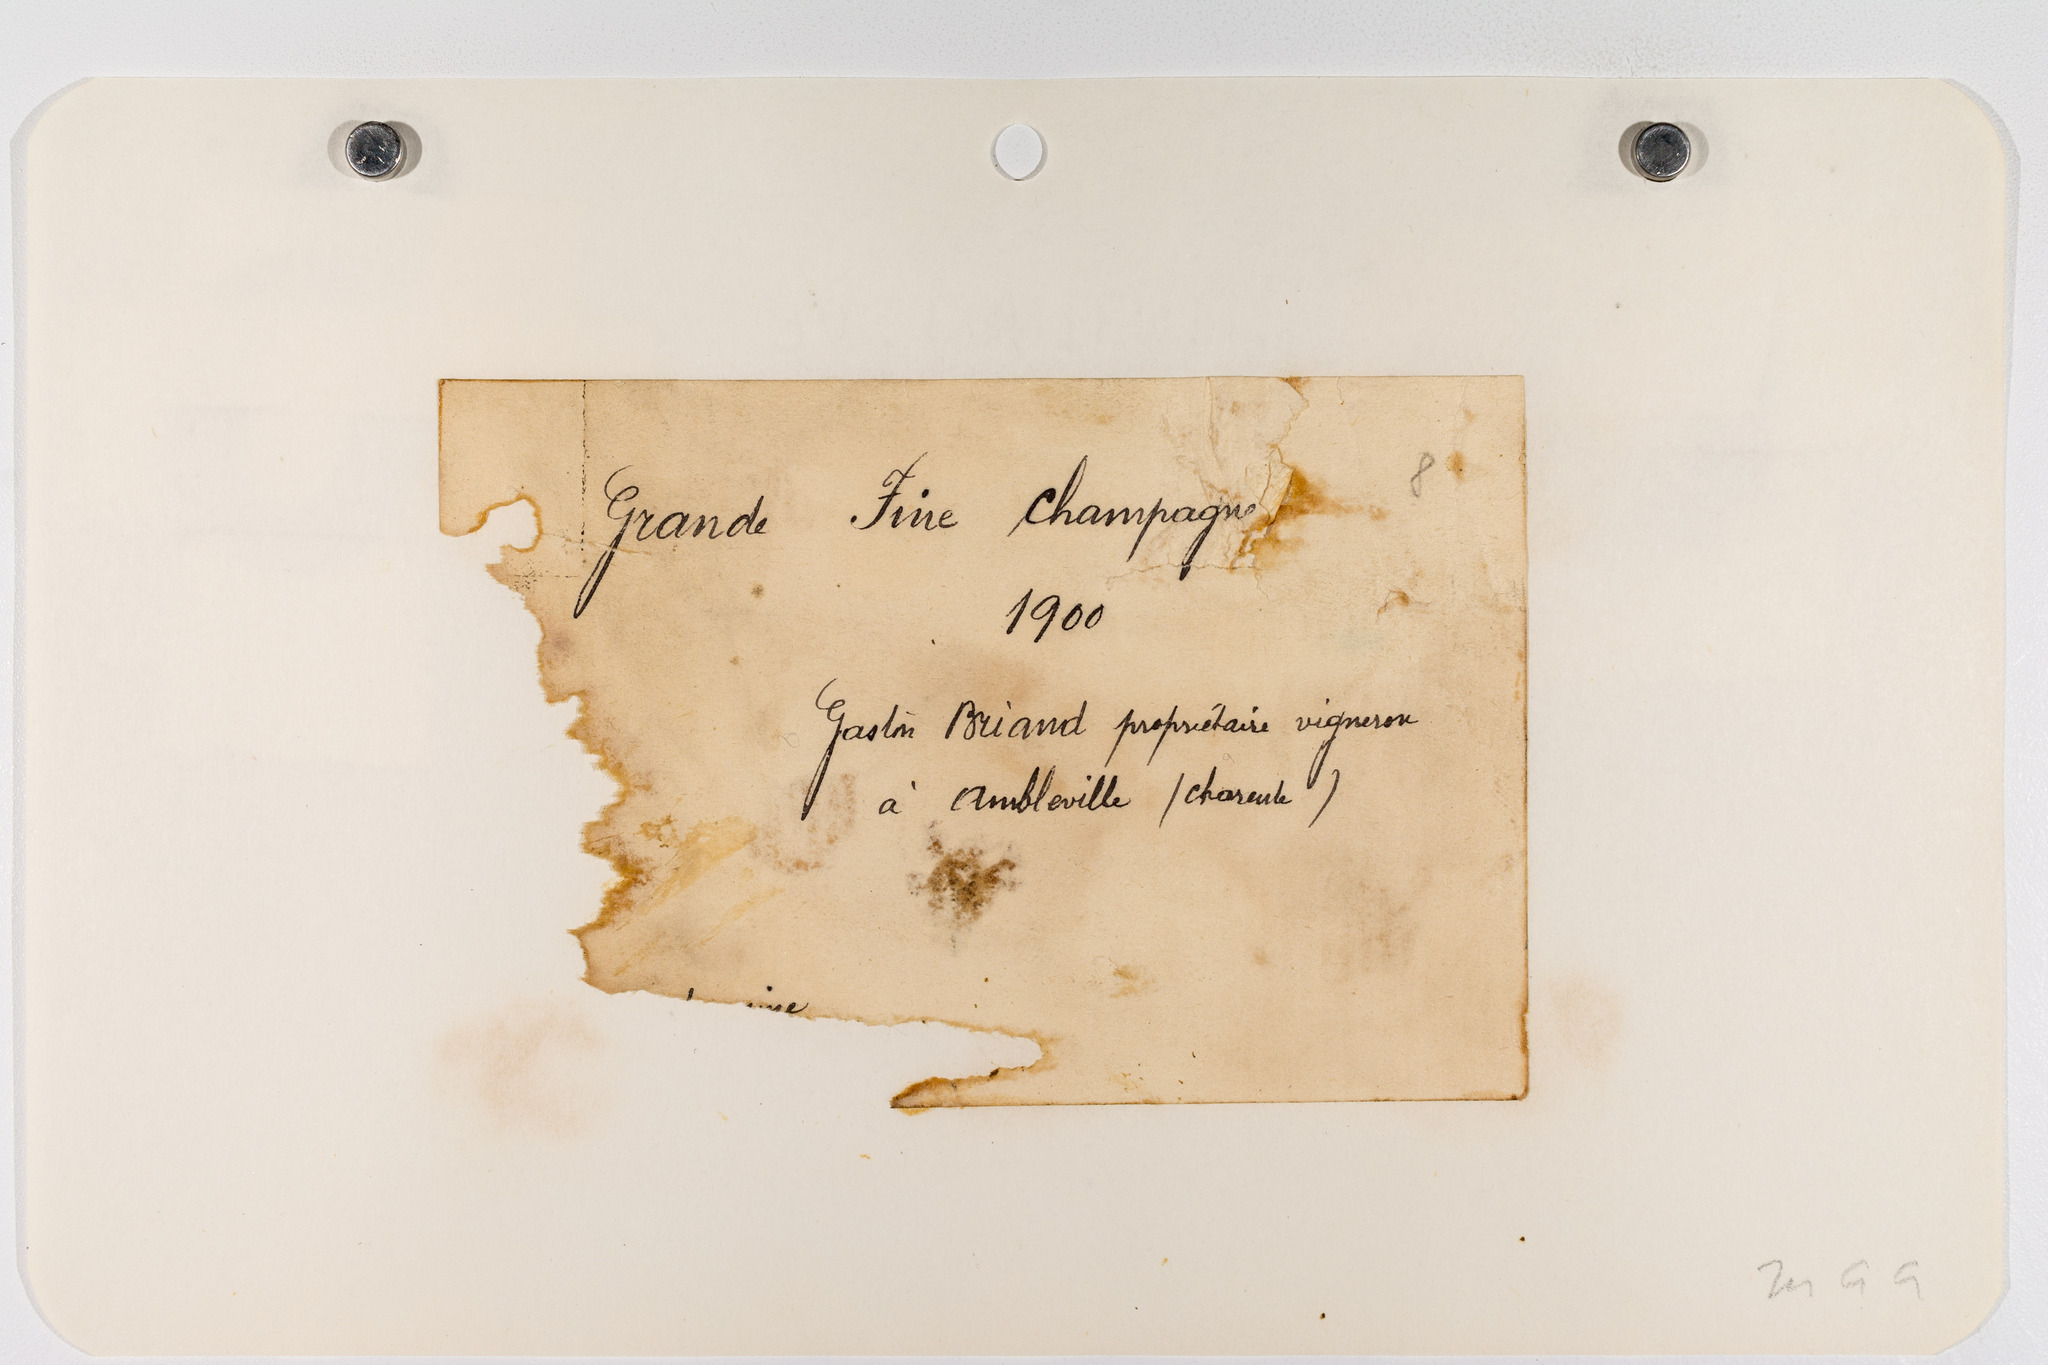 8
Grande Fine Champagne
1900
Gaston Briand propriétaire vigneron
à Ambleville (Charente)